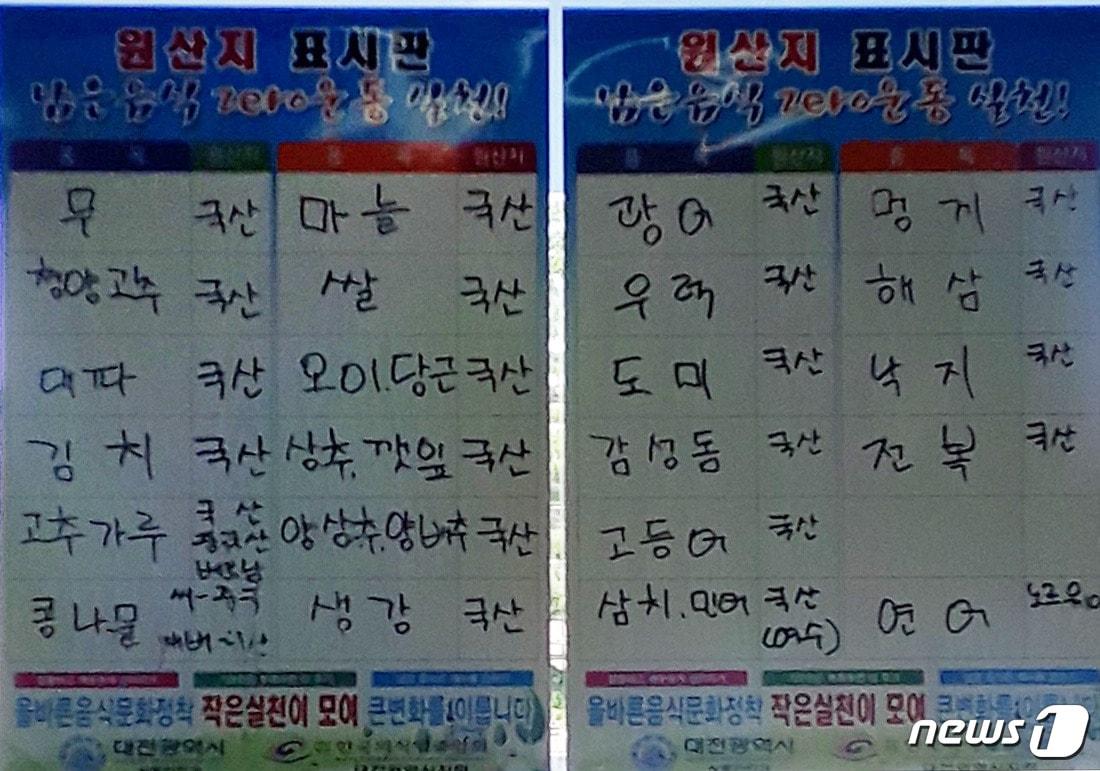 원산지 표시판
남은음식 zero운동 실천!
품 목 원산지 품 목 원산지
무 국산 마늘 국산
청양고추 국산 쌀 국산
대파 국산 오이.당근 국산
김치 국산 상추.깻잎 국산
고추가루 국산 중국산 베트남 양상추.양배추 국산
콩나물 씨-중국 재배-국산 생강 국산
올바른음식문화정착 작은실천이 모여 큰변화를 이룹니다
대전광역시
원산지 표시판
남은음식 zero운동 실천!
품 목 원산지 품 목 원산지
광어 국산 멍게 국산
우럭 국산 해삼 국산
도미 국산 낙지 국산
감성돔 국산 전복 국산
고등어 국산
삼치.민어 국산 (여수) 연어 노르웨이
올바른음식문화정착 작은실천이 모여 큰변화를 이룹니다
대전광역시
news1